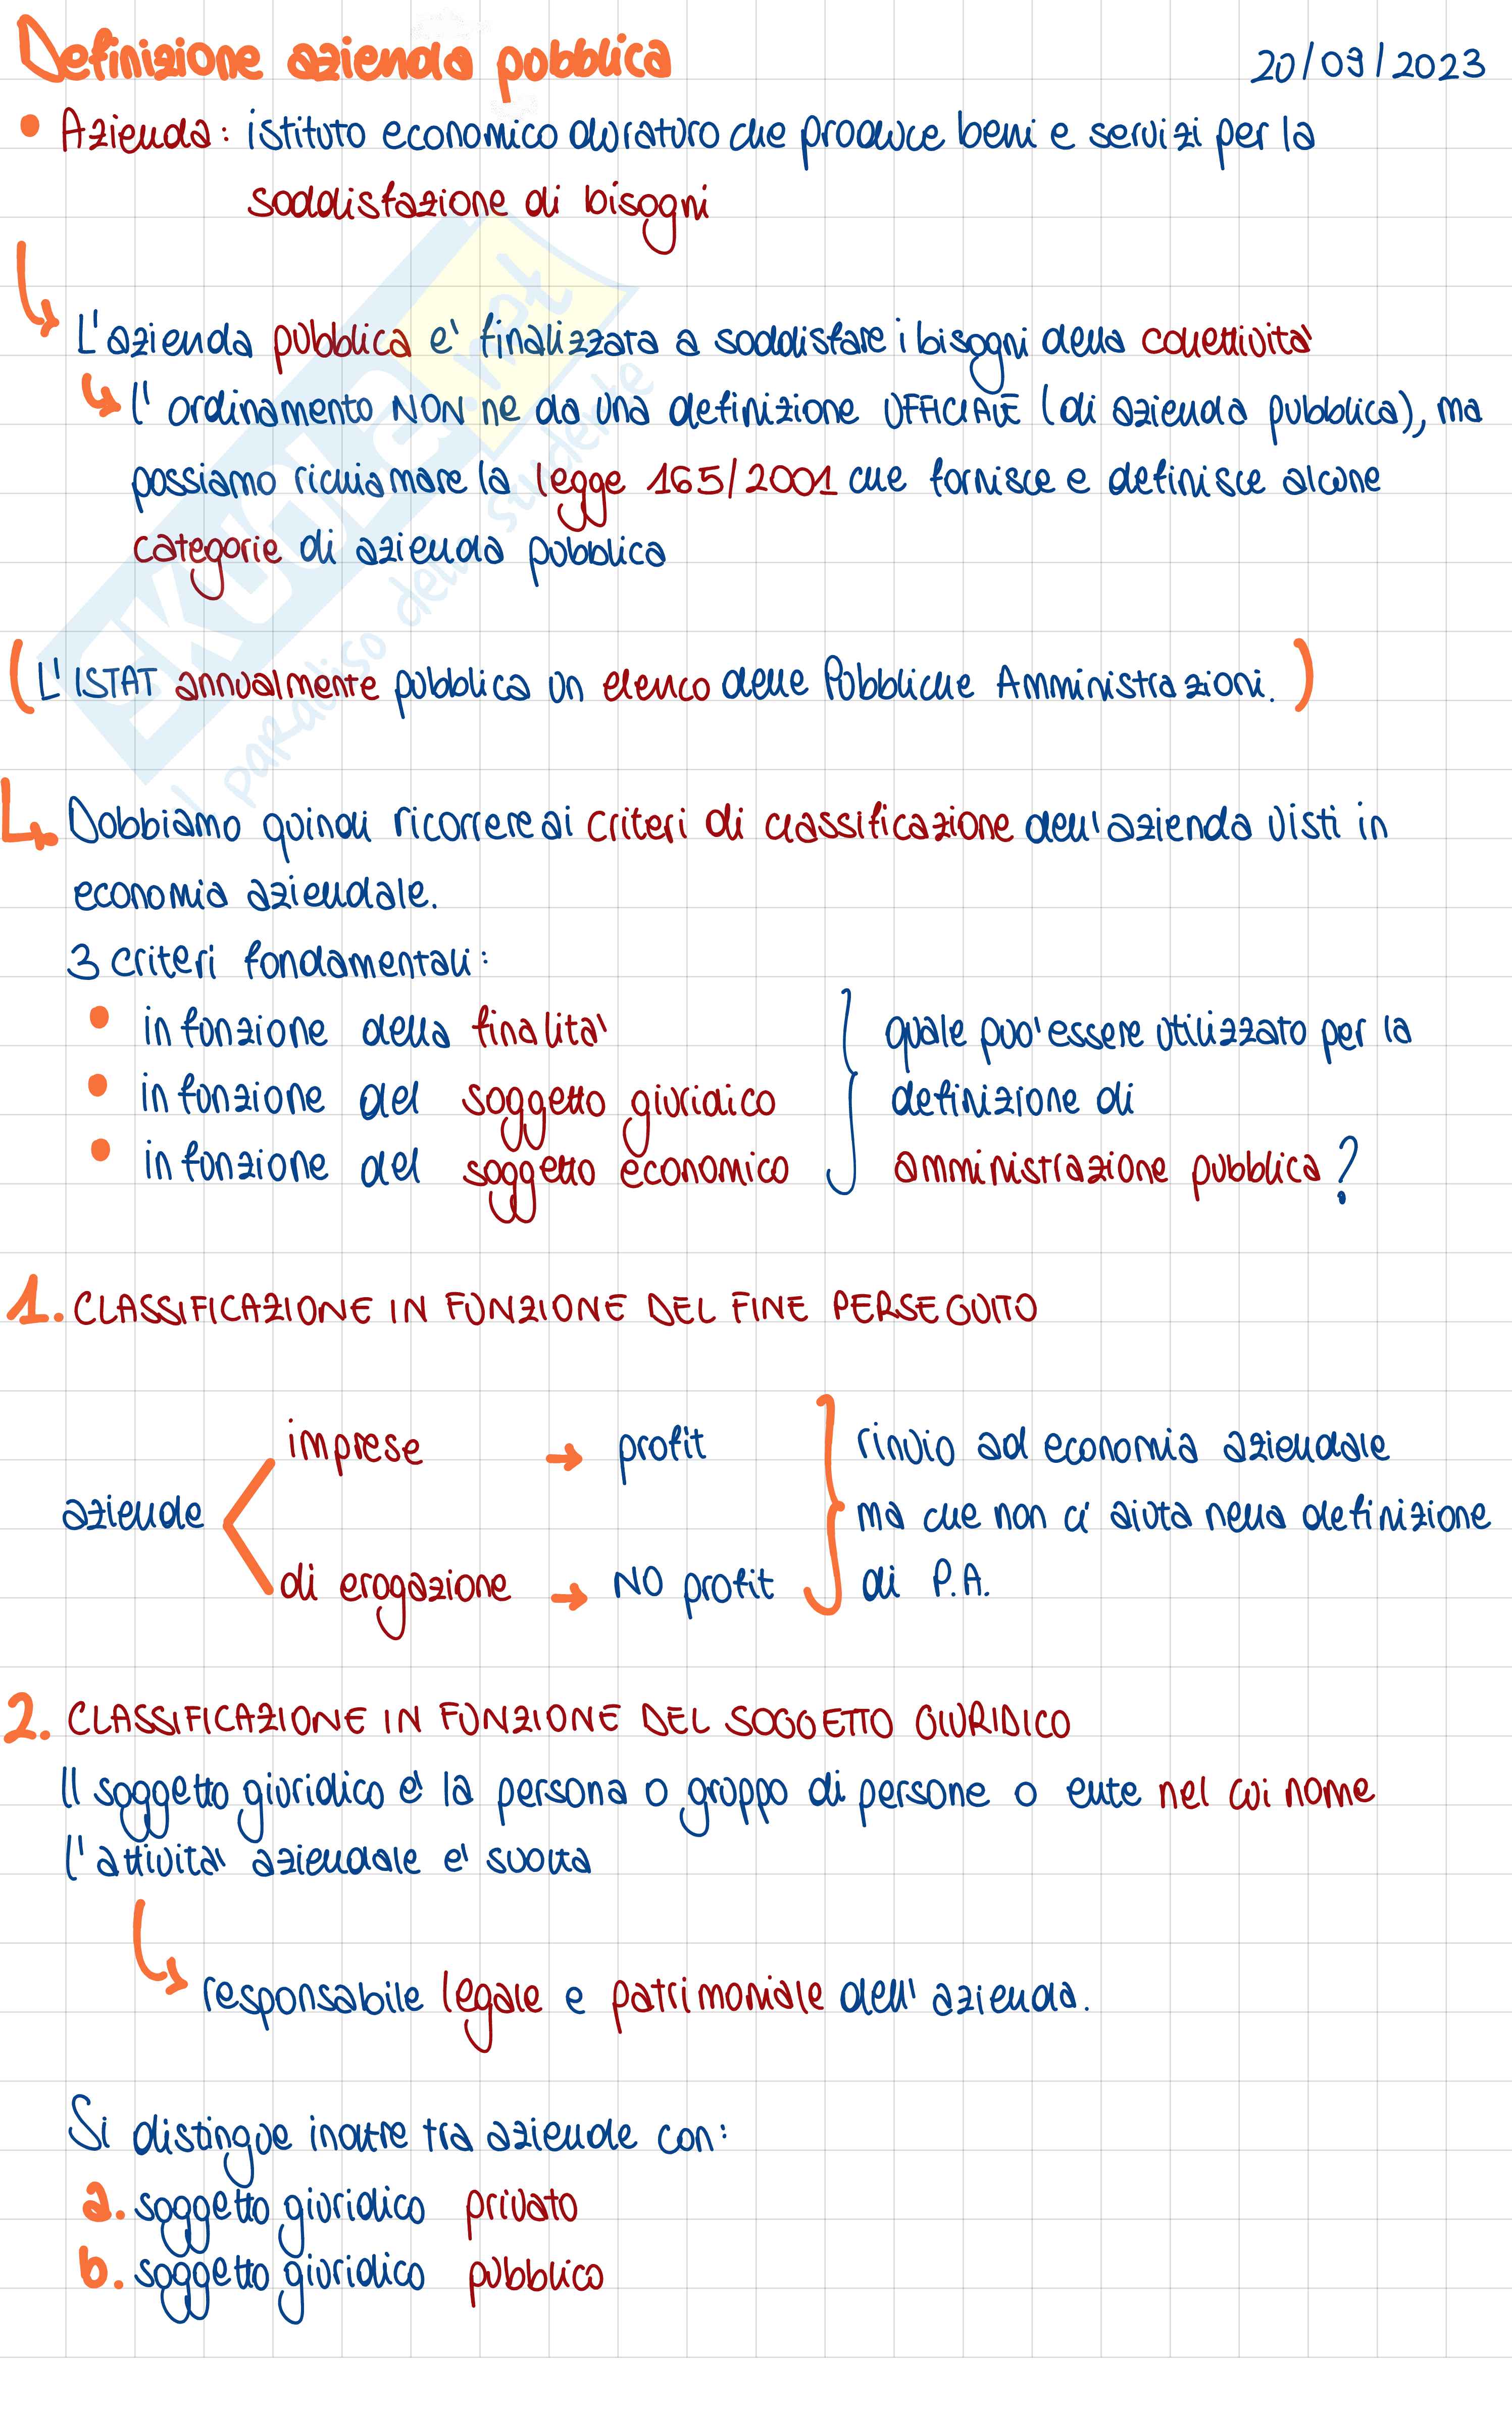 Definizione azienda pubblica
20/09/2023
• Azienda: istituto economico duraturo che produce beni e servizi per la
soddisfazione di bisogni
L'azienda pubblica e' finalizzata a soddisfare i bisogni della collettivita'
l' ordinamento NON ne da una definizione UFFICIALE (di azienda pubblica), ma
possiamo richiamare la legge 165/2001 che fornisce e definisce alcune
categorie di azienda pubblica
(L'ISTAT annualmente pubblica un elenco delle Pubbliche Amministrazioni.)
Dobbiamo quindi ricorrere ai criteri di classificazione dell'azienda visti in
economia aziendale.
3 criteri fondamentali:
• in funzione della finalita' } quale puo' essere utilizzato per la
• in funzione del soggetto giuridico } definizione di
• in funzione del soggetto economico } amministrazione pubblica?
1. CLASSIFICAZIONE IN FUNZIONE DEL FINE PERSEGUITO
imprese → profit } rinvio ad economia aziendale
aziende < } ma che non ci aiuta nella definizione
di erogazione → NO profit } di P.A.
2. CLASSIFICAZIONE IN FUNZIONE DEL SOGGETTO GIURIDICO
Il soggetto giuridico e' la persona o gruppo di persone o ente nel cui nome
l'attivita' aziendale e' svolta
responsabile legale e patrimoniale dell' azienda.
Si distingue inoltre tra aziende con:
a. soggetto giuridico privato
b. soggetto giuridico pubblico
SKUOLA.net
il paradiso dello studente